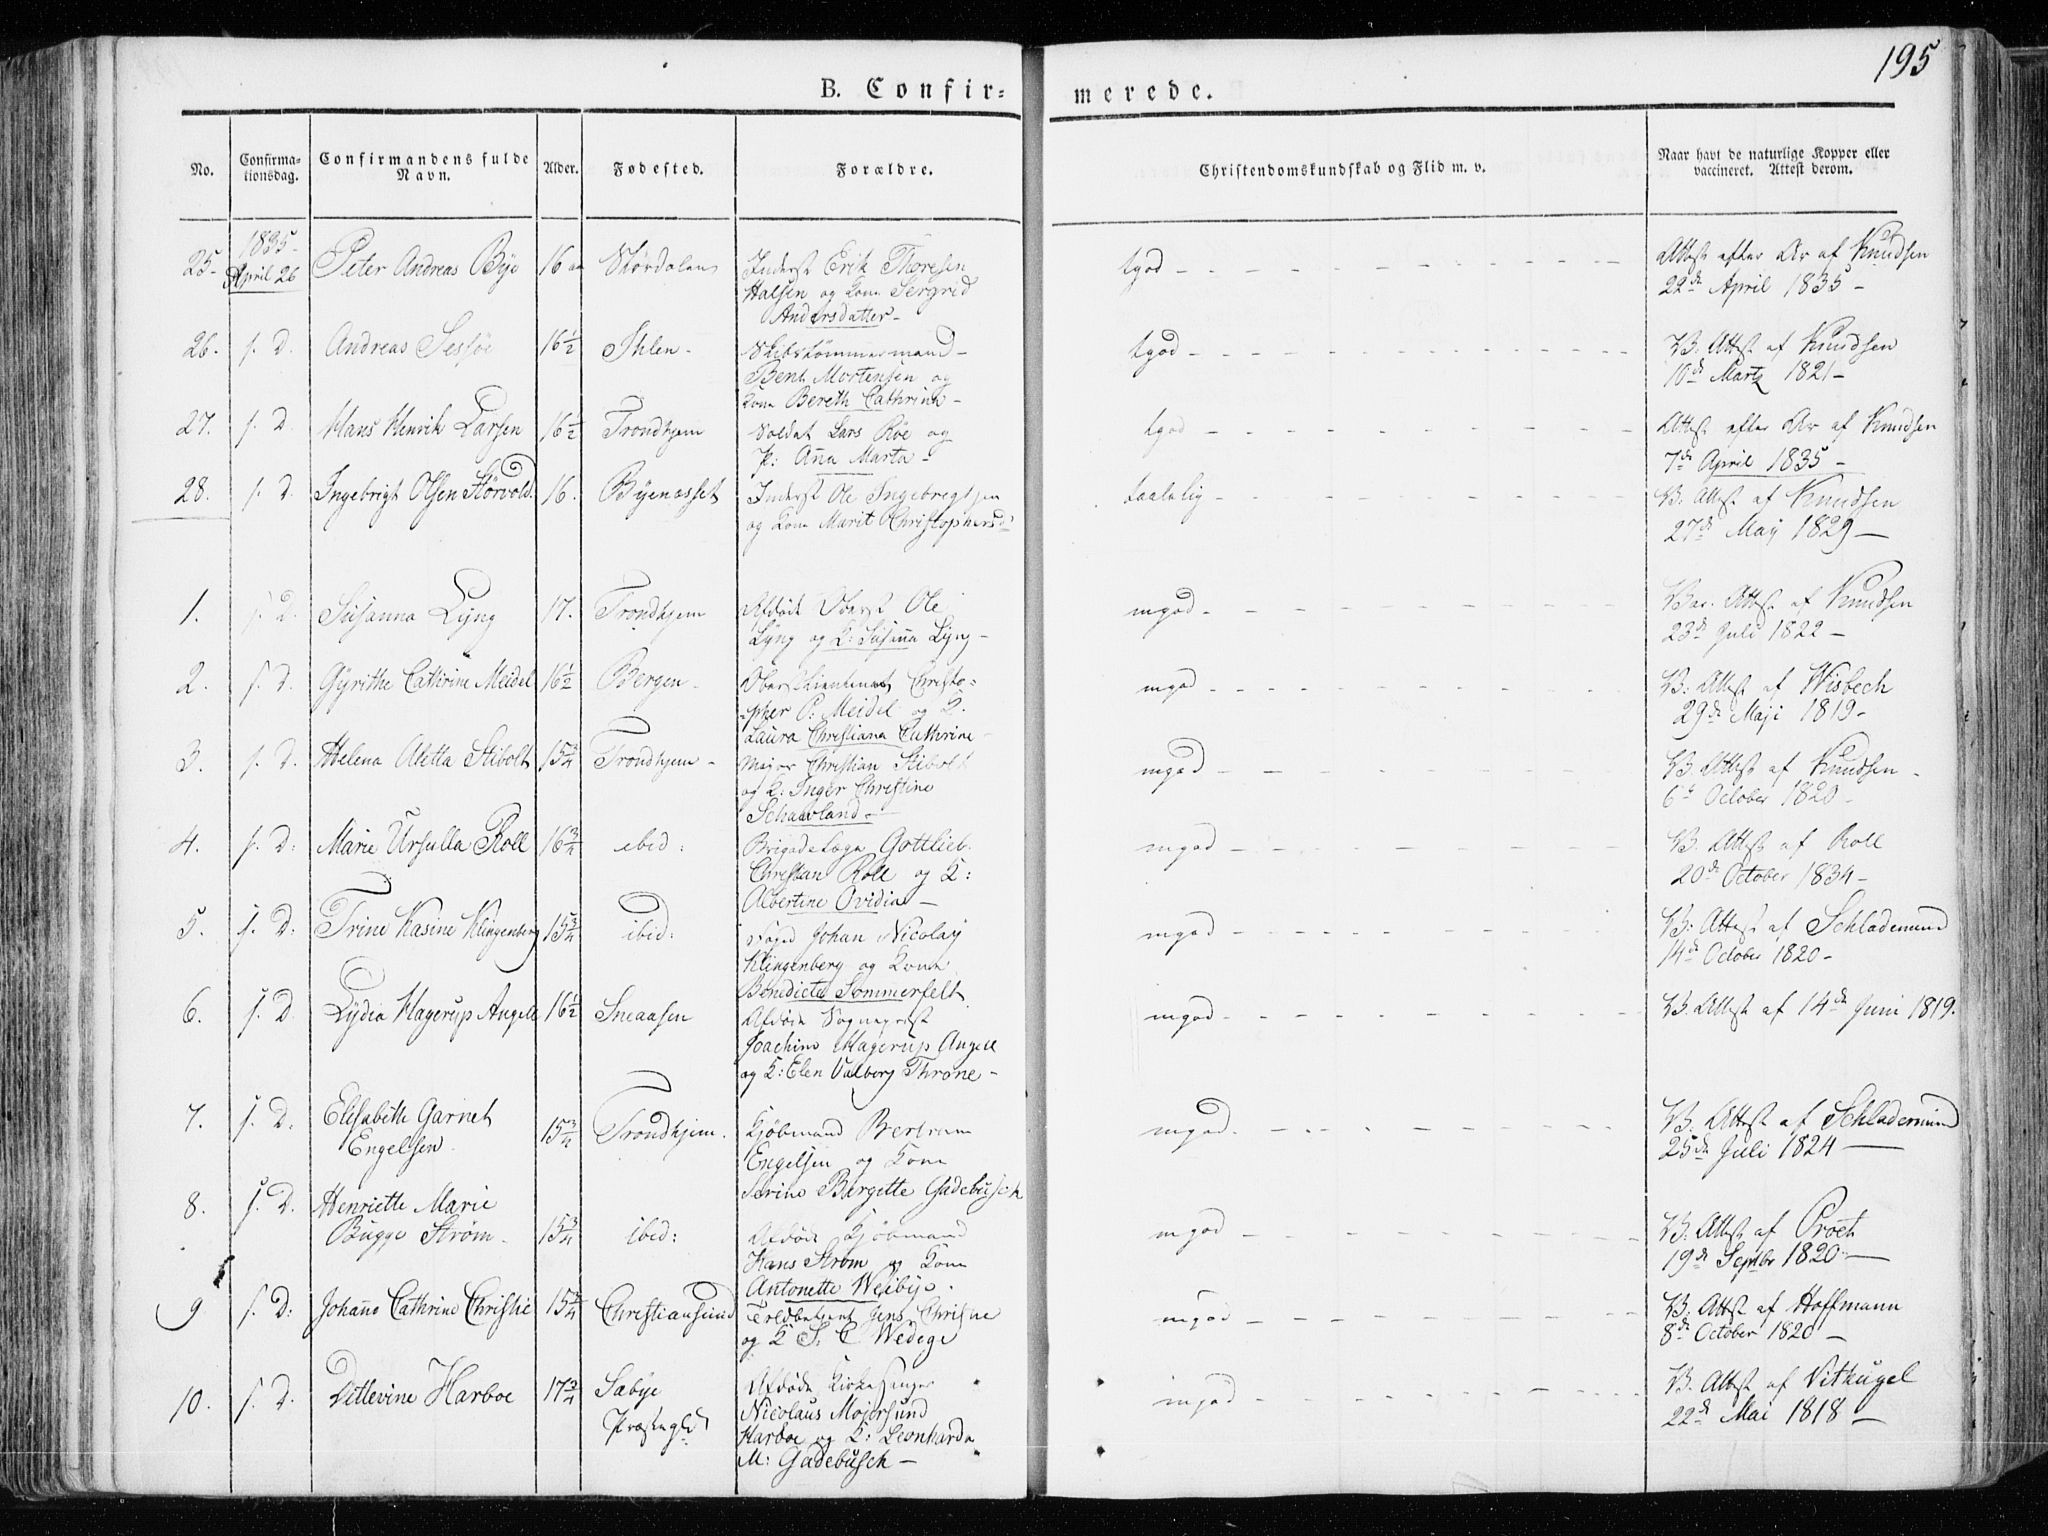 195
B. Confir-
merede.
No.
Confirma-
tionsdag.
Confirmandens fulde
Navn.
Alder.
Fødested.
Forældre.
Christendomskundskab og Flid m. v.
Naar havt de naturlige Kopper eller
vaccineret. Attest derom.
1835-
25- April 26 Peter Andreas Bye 16 Størdalen Inderst Erik Thoresen
Halsen og Kone Sergrid
Andersdatter-
tgod Attest efter Ar af Knudsen
22de April 1835-
26. s. D. Andreas Sessøe 16½ Ihlen- Skibstømmermand-
Bent Mortensen og
Kone Bereth Cathrine-
tgod V. Attest af Knudsen
10de Martz 1821-
27. s. D. Hans Henrik Larsen 16½ Trondhjem Soldat Lars Røe og
P: Ana Marta-
tgod Attest efter Ar af Knudsen
7de April 1835-
28. s. D. Ingebrigt Olsen Størvold. 16. Byenæsset Inderst Ole Ingebregtsen
og Kone Marit Christophersd:
taalelig V. Attest af Knudsen
27de May 1829-
1. s. D. Susanna Lyng 17. Trondhjem Afdøde Oberst Ole
Lyng og K: Susana Lyng-
mgod Vac. Attest af Knudsen
23de Juli 1822-
2. s. D. Gyrithe Cathrine Meidel 16½ Bergen- Oberstlieutenant Christo-
pher P. Meidel og K.
Laura Christiana Cathrine-
mgod V: Attest af Wisbech
29de Maji 1819-
3. s. D. Helena Aletta Stibolt 15¾ Trondhjem- Major Christian Stibolt
og K: Inger Christine
Schavland-
mgod V. Attest af Knudsen-
6te October 1820-
4. s. D: Marie Ursulla Roll 16¾ ibid: Brigadelæge Gottlieb
Christian Roll og K:
Albertine Ovidia-
mgod V. Attest af Roll
20de October 1834-
5. s. D: Trine Kasine Klingenberg 15¾ ibid: Foged Johan Nicolay
Klingenberg og Kone
Benedicte Sommerfelt
mgod V: Attest af Schlademund
14de October 1820-
6. s. D. Lydia Hagerup Angell 16½ Sneaasen Afdøde Sognepræst
Joachim Hagerup Angell
og K: Elen Valborg Throne-
mgod V. Attest af 14de Juni 1819.
7. s. D. Elisabeth Garnet
Engelsen
15¾ Trondhjem. Kjøbmand Bertram
Engelsen og Kone
Serine Birgette Gadebusch
mgod V. Attest af Schlademund
25de Juli 1824-
8. s. D. Henriette Marie
Bugge Strøm-
15¾ ibid: Afdøde Kjøbmand
Hans Strøm og Kone
Antonette Weibye.
mgod V. Attest af Proet
19de Septbr 1820-
9 s. D: Johane Cathrine Christie 15¾ Christiansund Toldbetjent Jens Christie
og K S. C Wedege
mgod V. Attest af Hoffmann
8de October 1820-
10. s. D. Ditlevine Harboe 17¾ Sabye
Præstegld Afdøde Kirkesanger
Nicolaus Mojersund
Harboe og K: Leonharda
M: Gadebusch-
mgod V. Attest af Vithugel
22de Mai 1818-